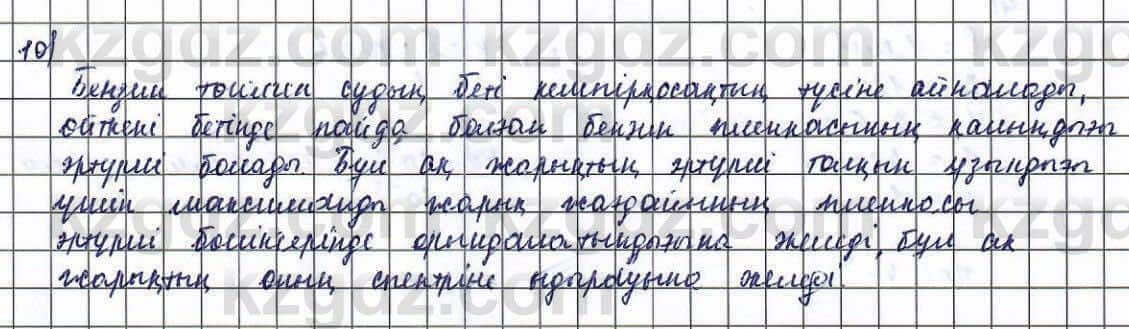 10)
Бензин тойлин судың беті кемпірқосақтың түсіне айналады,
өйткені бетінде пайда болған бензин пленкасының қалыңдығы
әртүрлі болады. Бұл ақ жарықтың әртүрлі толқын ұзындығы
үшін максималды жарық жағдайының пленкасы
әртүрлі бөліктерінде орындалатындығына келеді, бұл ақ
жарықтың оның спектріне ыдырауына келеді.
kzgdz.com